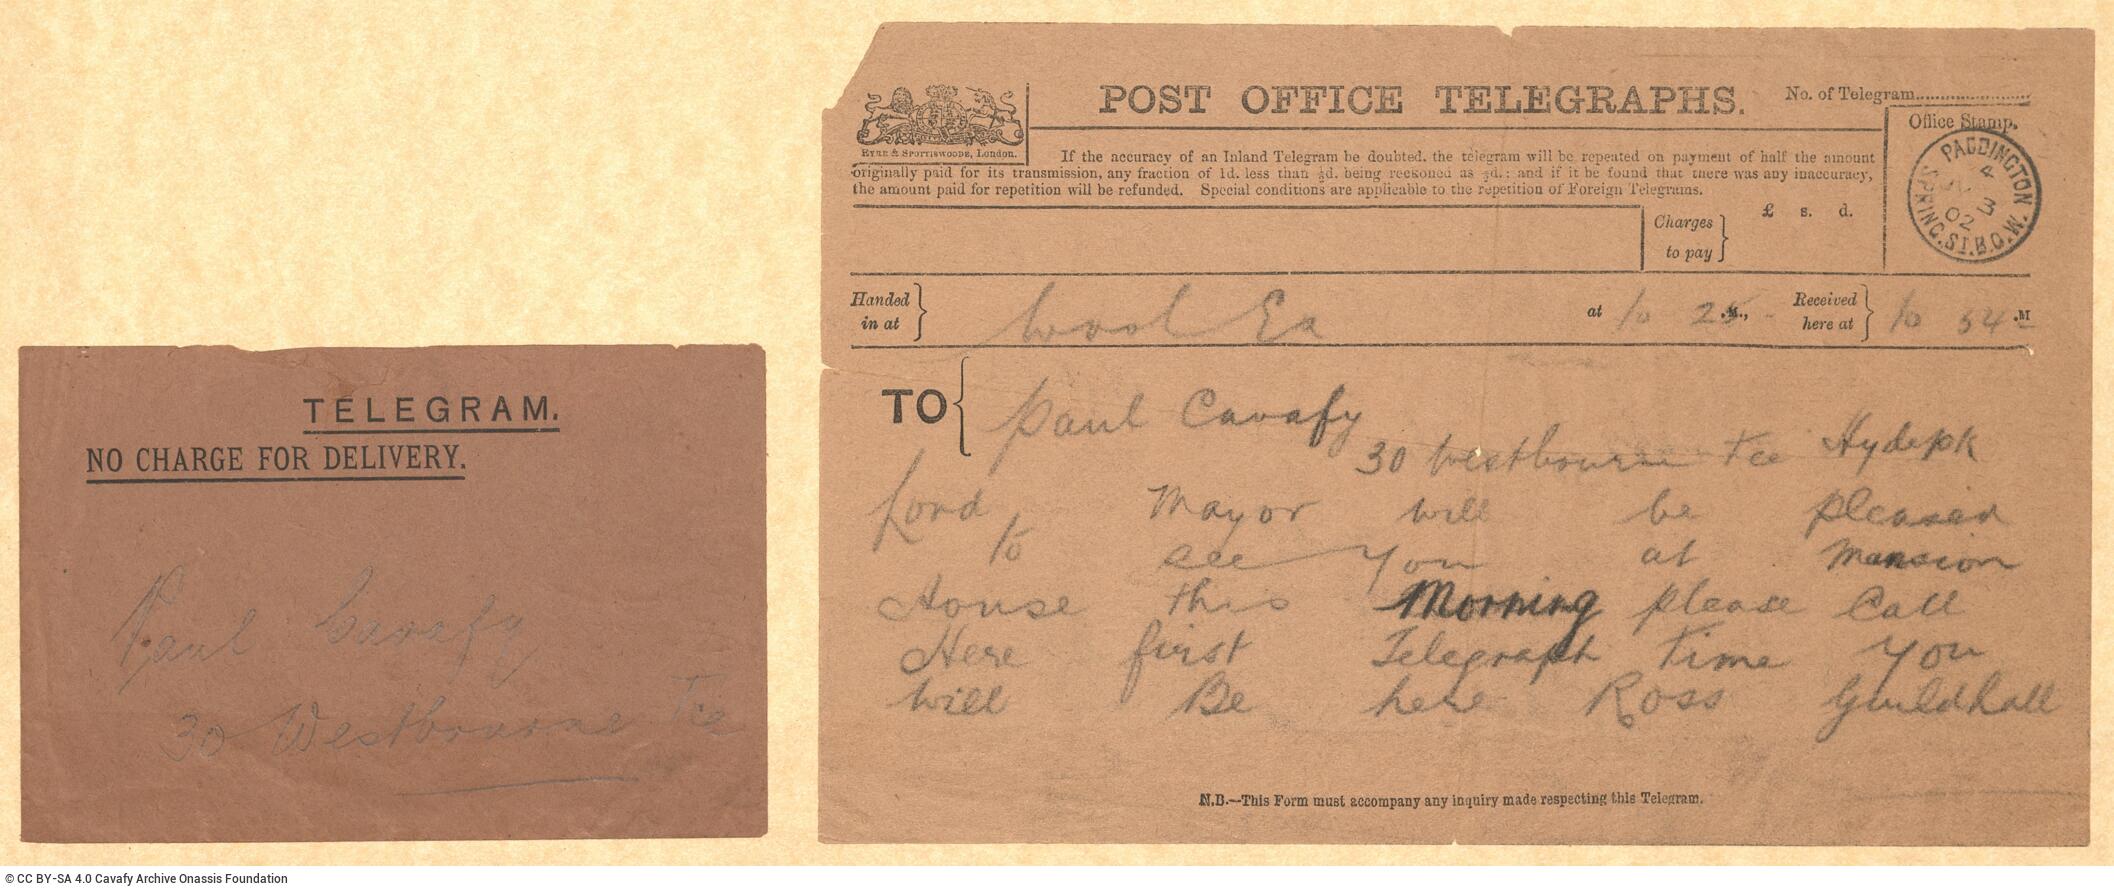 TELEGRAM.
NO CHARGE FOR DELIVERY.
Paul Cavafy
30 Westbourne Tce
POST OFFICE TELEGRAPHS.
No. of Telegram
Office Stamp.
EYRE & SPOTTISWOODE, London.
If the accuracy of an Inland Telegram be doubted, the telegram will be repeated on payment of half the amount
originally paid for its transmission, any fraction of 1d. less than ½d. being reckoned as ½d.: and if it be found that there was any inaccuracy,
the amount paid for repetition will be refunded. Special conditions are applicable to the repetition of Foreign Telegrams.
PADDINGTON. W.
4
JL 3
02
SPRING. ST. B.O.
Charges
to pay
£ s. d.
Handed
in at
Wool Ex
at 10 25 .M.,
Received
here at
10 54 .M
TO
Paul Cavafy
30 Westbourne Tce Hydepk
Lord Mayor will be pleased
to see you at Mansion
House this Morning please Call
Here first Telegraph Time you
will Be here Ross Guildhall
N.B.—This Form must accompany any inquiry made respecting this Telegram.
© CC BY-SA 4.0 Cavafy Archive Onassis Foundation